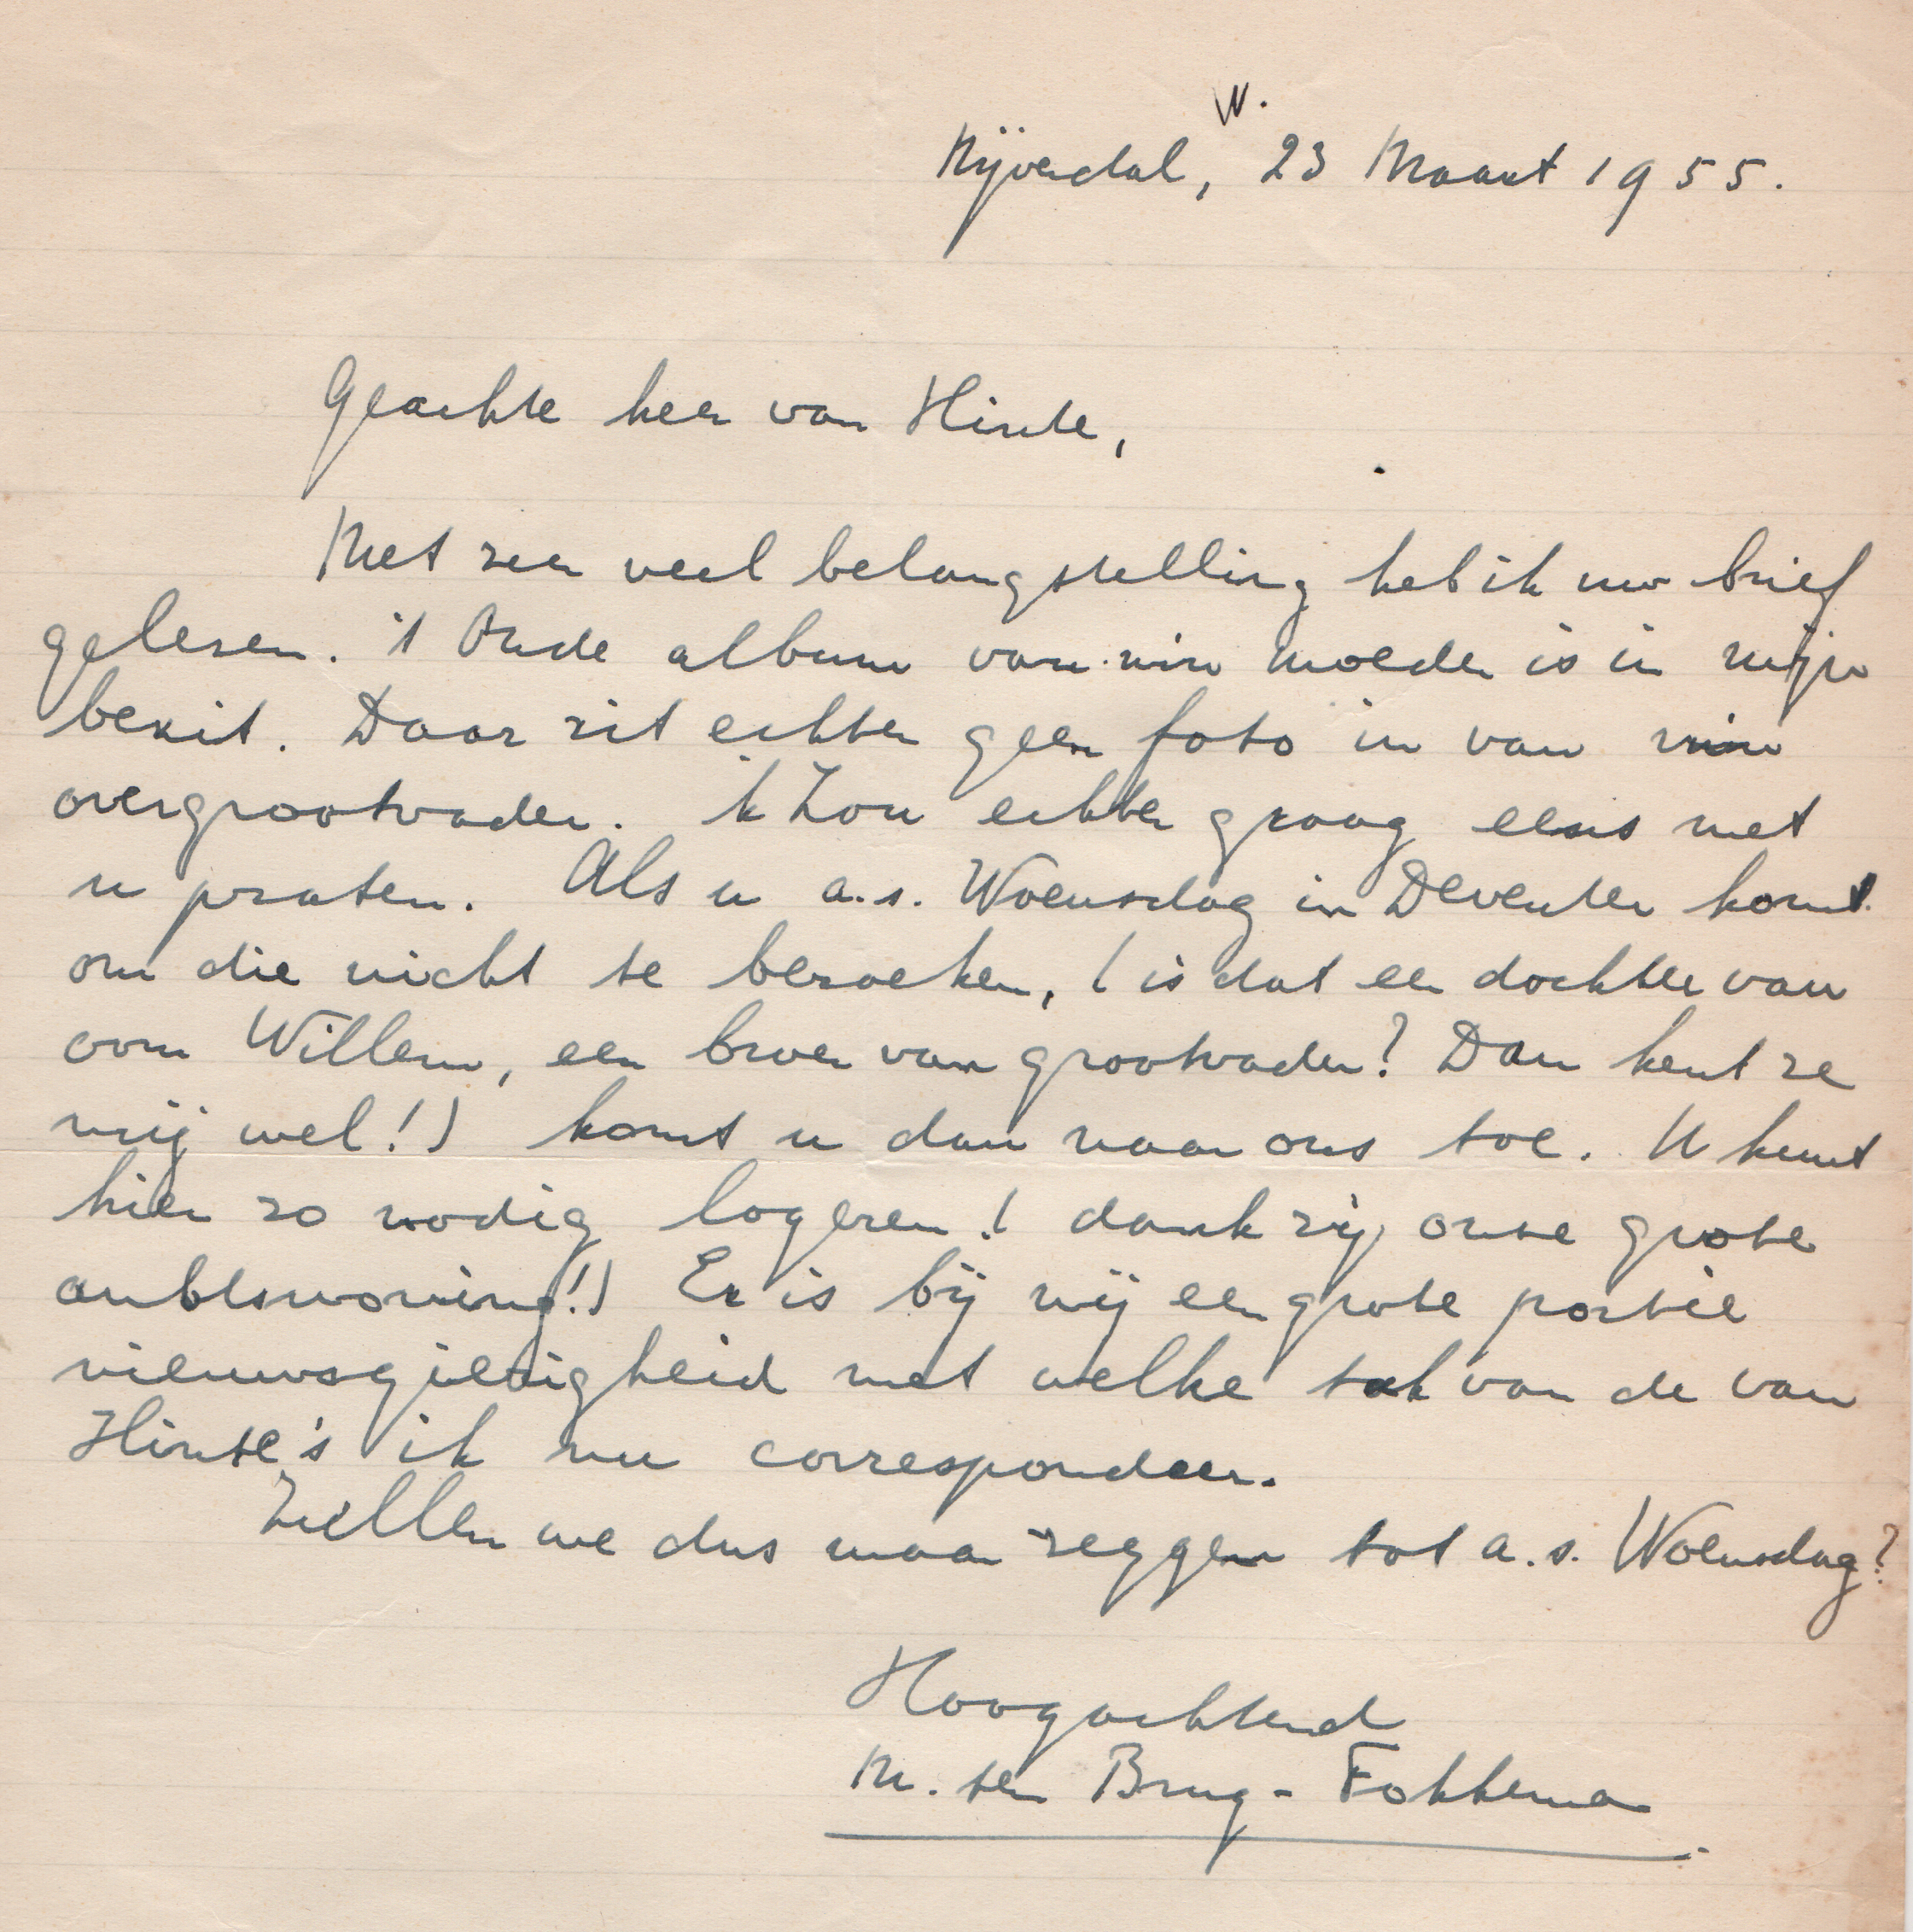 W.
Nijverdal, 23 Maart 1955.
Geachte heer van Hinte,
Met zeer veel belangstelling heb ik uw brief
gelezen. 't Oude album van mijn moeder is in mijn
bezit. Daar zit echter geen foto in van mijn
overgrootvader. 'k Zou echter graag eens met
u praten. Als u a.s. Woensdag in Deventer komt
om die nicht te bezoeken, (is dat een dochter van
oom Willem, een broer van grootvader? Dan kent ze
mij wel!) komt u dan naar ons toe. U kunt
hier zo nodig logeren! (dank zij onze grote
ambtswoning!) Er is bij mij een grote portie
nieuwsgierigheid met welke tak van de van
Hinte's ik nu correspondeer.
Zullen we dus maar zeggen tot a.s. Woensdag?
Hoogachtend
M. ter Brug - Fokkema